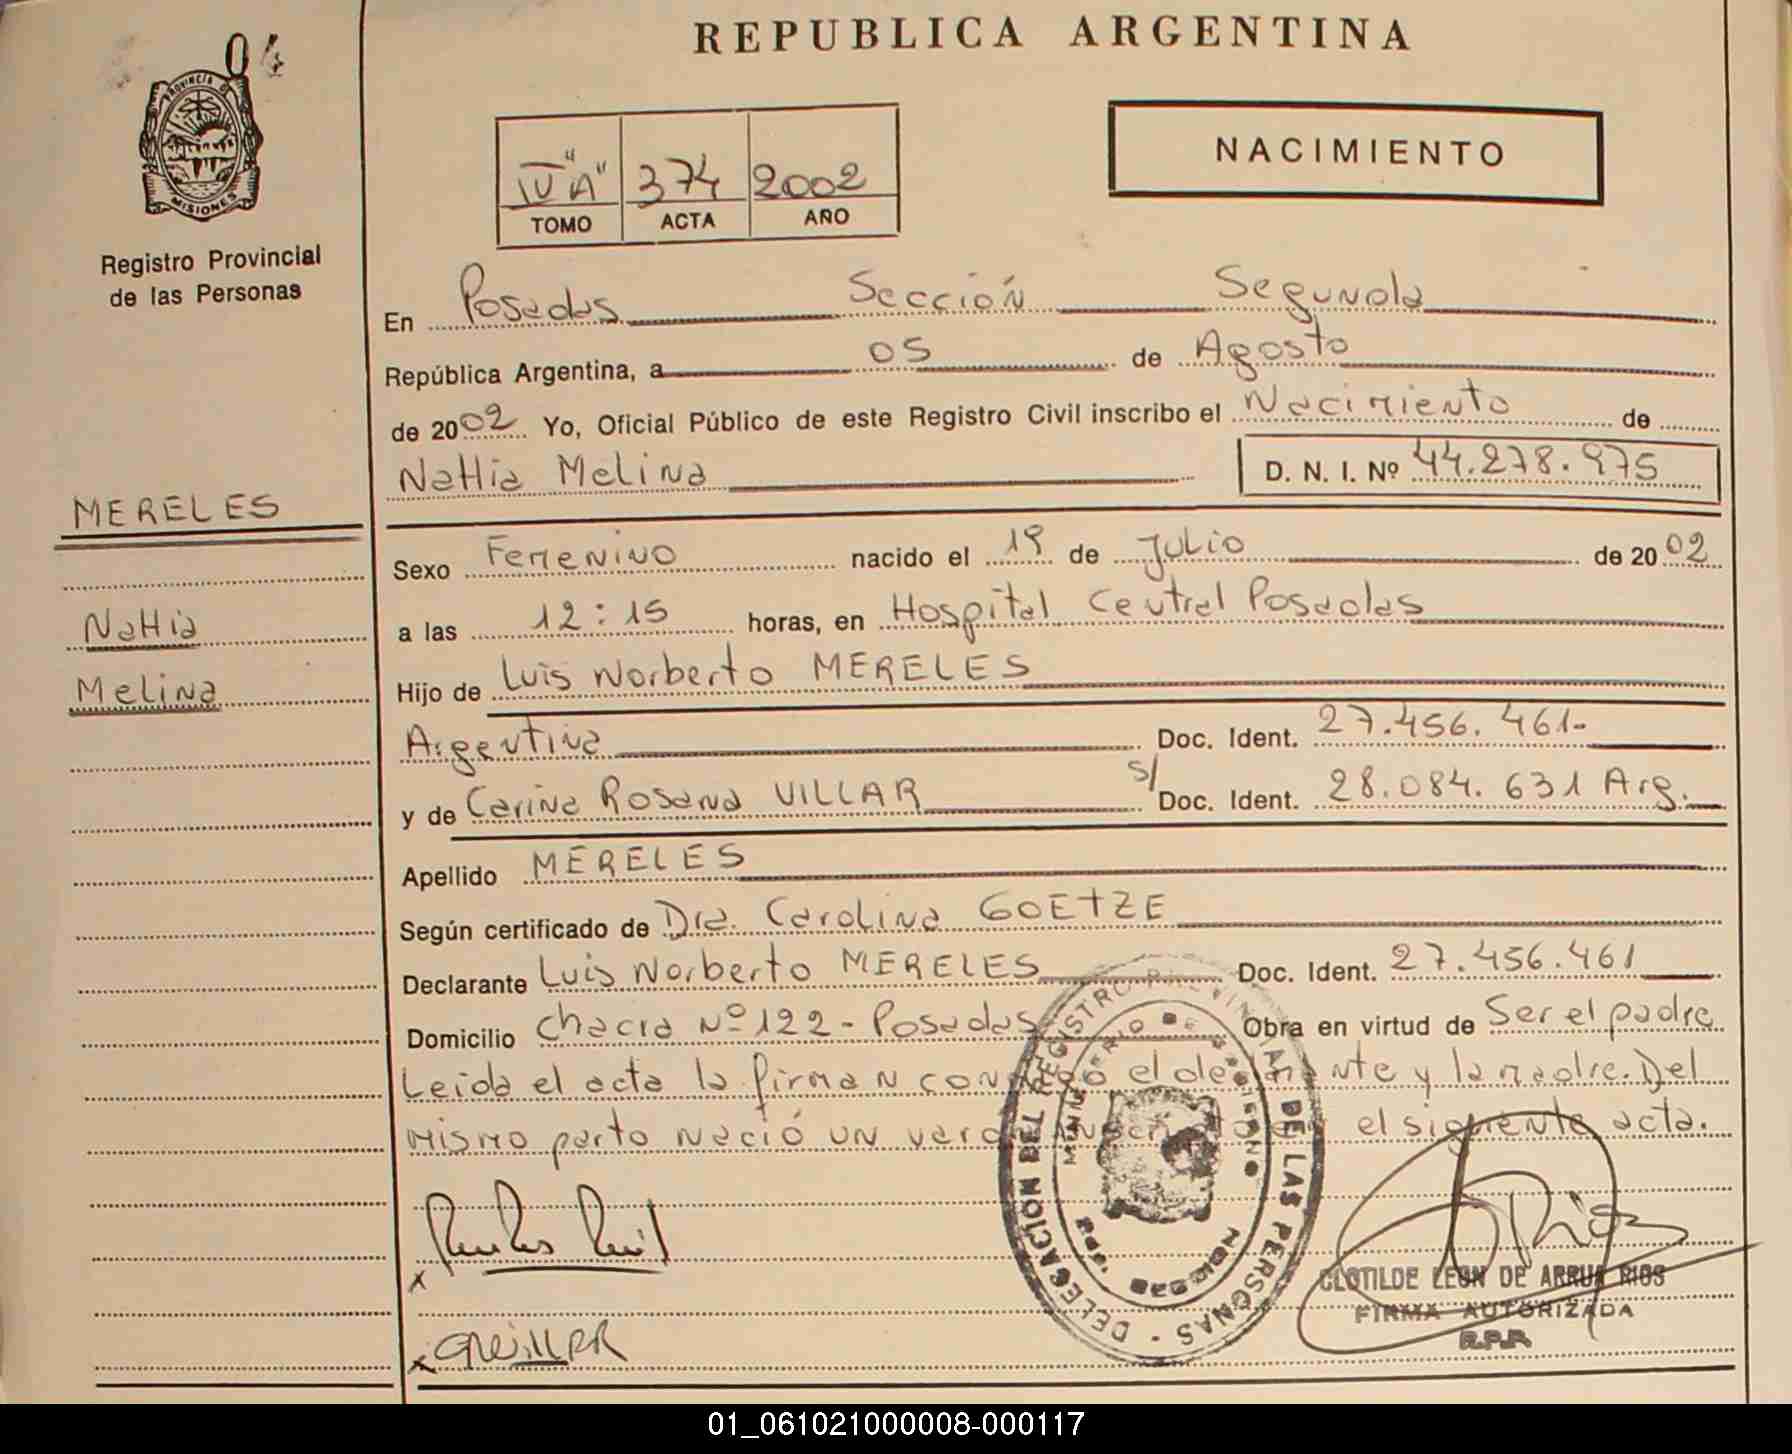 REPUBLICA ARGENTINA
04
PROVINCIA DE
MISIONES
Registro Provincial
de las Personas
IV "A" 374 2002
TOMO ACTA AÑO
NACIMIENTO
En Posadas Sección Segunda
República Argentina, a 05 de Agosto
de 2002 Yo, Oficial Público de este Registro Civil inscribo el Nacimiento de
Nahia Melina D. N. I. Nº 44.278.975
MERELES
Nahia
Melina
Sexo Femenino nacido el 19 de Julio de 2002
a las 12:15 horas, en Hospital Central Posadas
Hijo de Luis Norberto MERELES
Argentina Doc. Ident. 27.456.461-
y de Carina Rosana VILLAR s/ Doc. Ident. 28.084.631 Arg.
Apellido MERELES
Según certificado de Dra. Carolina GOETZE
Declarante Luis Norberto MERELES Doc. Ident. 27.456.461
Domicilio Chacra Nº 122 - Posadas Obra en virtud de Ser el padre
Leida el acta la firman conmigo el declarante y la madre. Del
mismo parto nació un varón el siguiente acta.
DELEGACION DEL REGISTRO PROVINCIAL DE LAS PERSONAS
MINISTERIO DE GOBIERNO
CLOTILDE LEON DE ARRUA RIOS
FIRMA AUTORIZADA
R.P.P.
x
x CRVILLAR
01_061021000008-000117